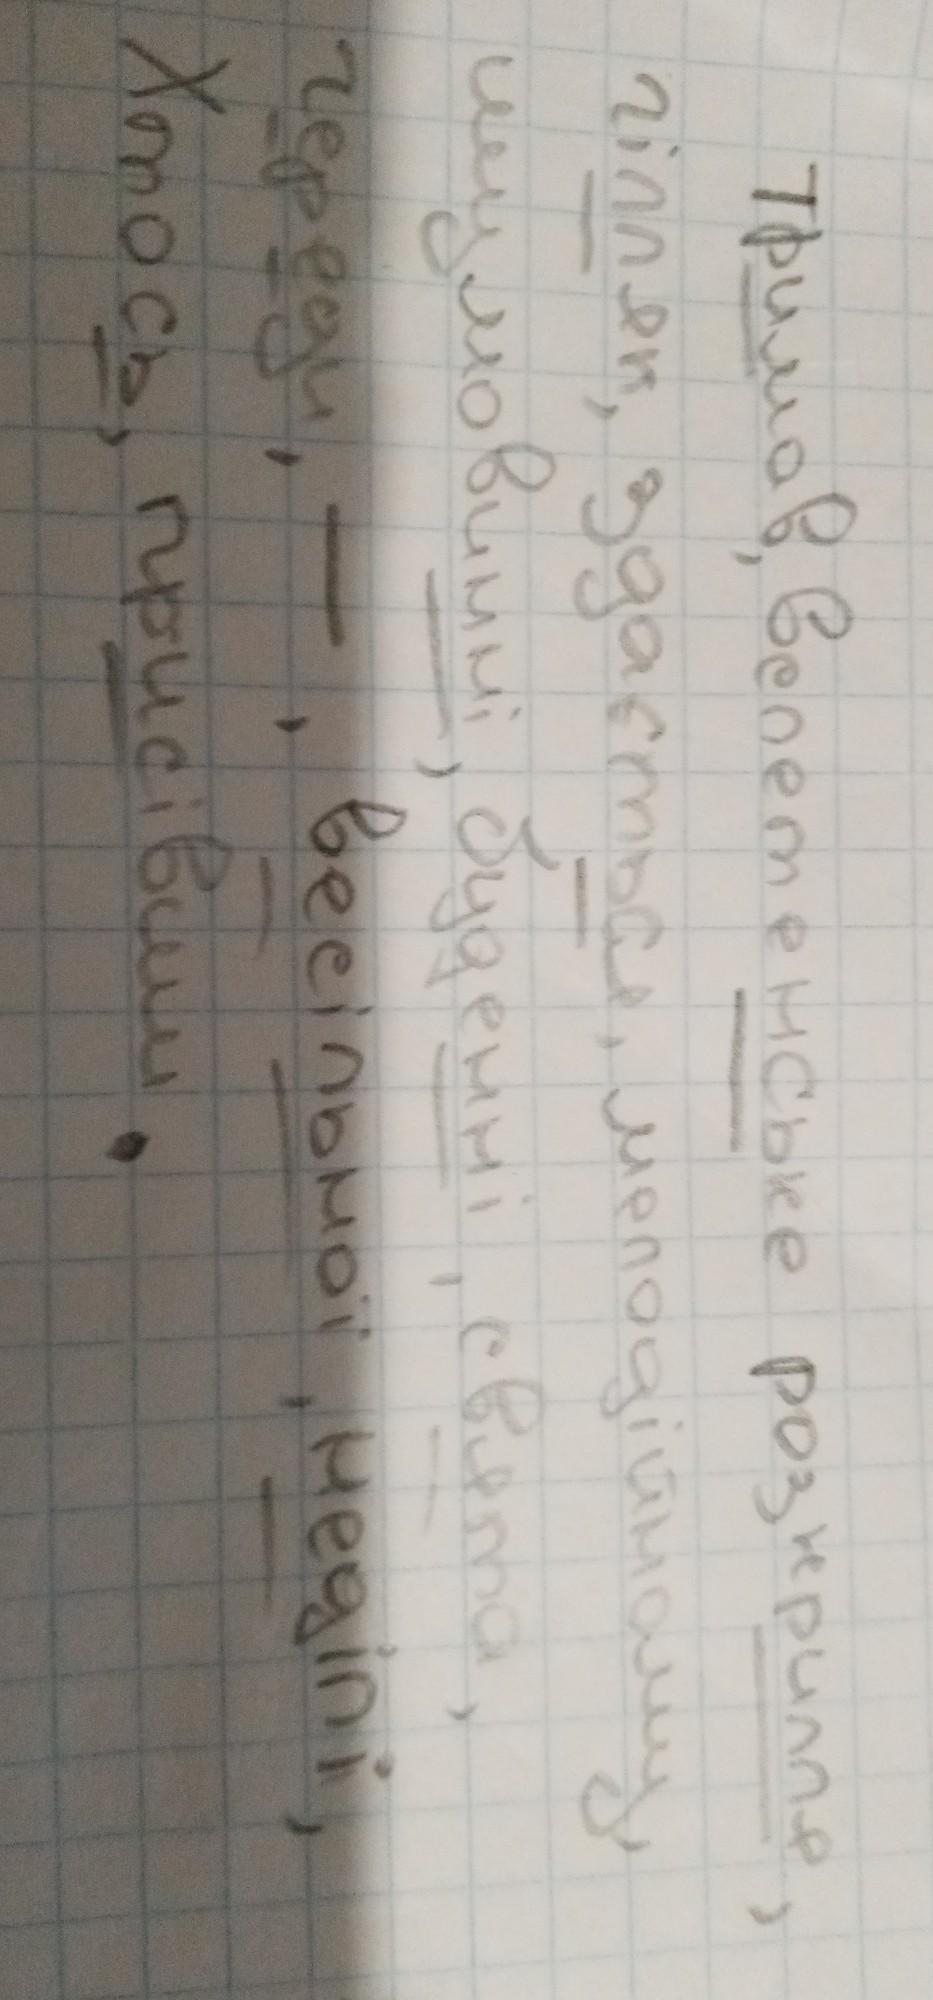 Тримав, велетенське розкрилля,
гіллях, здається, мелодійному,
шумовинні, буденні, свята,
череди, —, весільної, неділі,
Хтось, присівши.